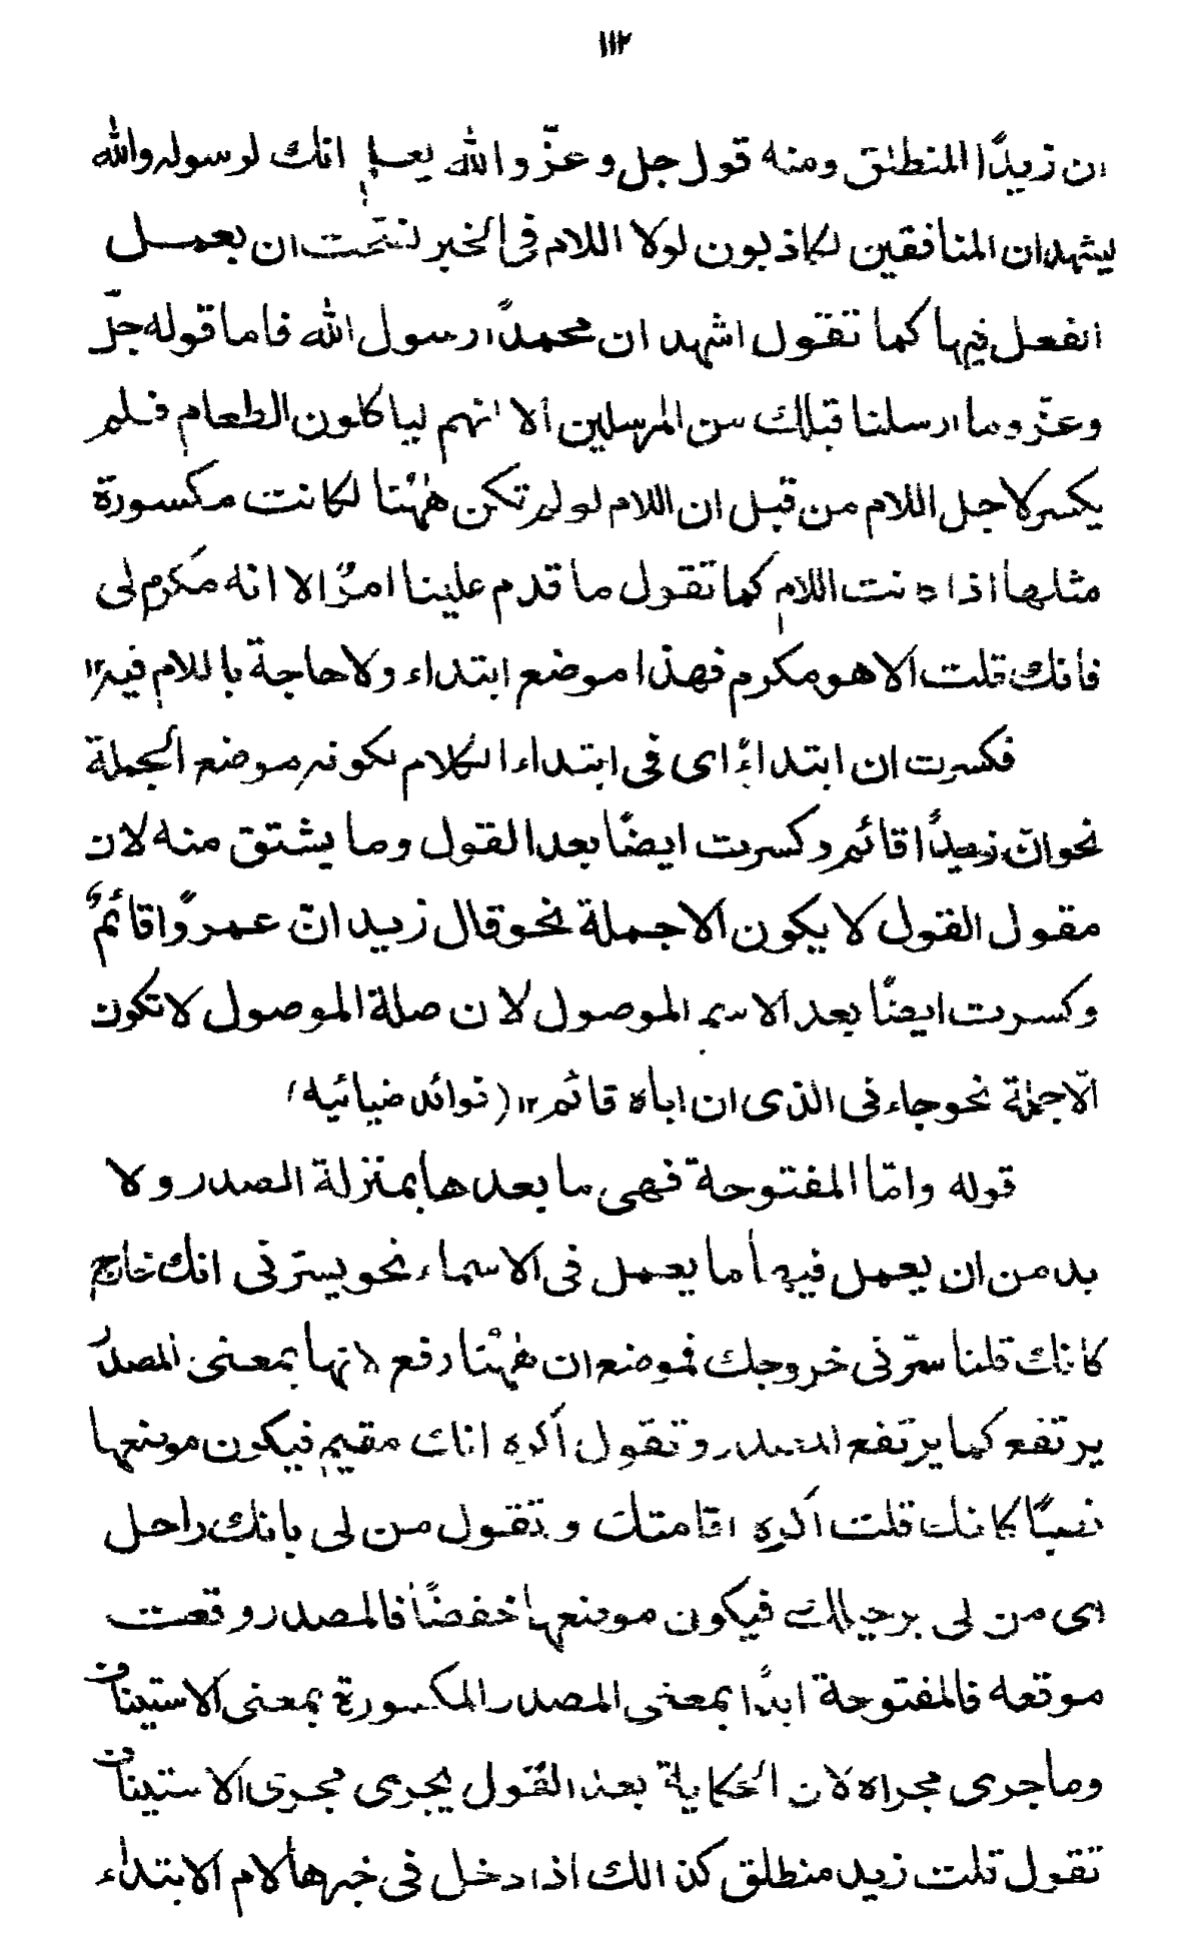 ١١٢
ان زيدًا المنطلق ومنه قول جل وعزّ والله يعلم انك لرسوله والله
يشهد ان المنافقين لكاذبون لولا اللام فى الخبر لفتحت ان بعمل
الفعل فيها كما تقول اشهد ان محمدًا رسول الله فاما قوله جلّ
وعزّ وما ارسلنا قبلك من المرسلين الا انهم لياكلون الطعام فلم
يكسر لاجل اللام من قبل ان اللام لو لم تكن ههُنا لكانت مكسورة
مثلها اذا كانت اللام كما تقول ما قدم علينا امرٌ الا انه مكرم لى
فانك قلت الا هو مكرم فهذا موضع ابتداء ولا حاجة باللام فيه ١٢
فكسرت ان ابتداءً اى فى ابتداء الكلام لكونه موضع الجملة
نحو انّ زيدًا قائم وكسرت ايضًا بعد القول وما يشتق منه لان
مقول القول لا يكون الا جملة نحو قال زيد انّ عمروًا قائمٌ
وكسرت ايضًا بعد الاسم الموصول لان صلة الموصول لا تكون
الّا جملة نحو جاءنى الذى ان اباه قائم ١٢ (فوائد ضيائيه)
قوله وامّا المفتوحة فهى ما بعدها بمنزلة المصدر ولا
بد من ان يعمل فيها ما يعمل فى الاسماء نحو يسترنى انك خارج
كانك قلنا سرّنى خروجك فموضع ان ههُنا رفع لانها بمعنى المصدر
يرتفع كما يرتفع المصدر وتقول اكره انك مقيم فيكون موضعها
نصبًا كانك قلت اكره اقامتك وتقول من لى بانك راحل
اى من لى برحيلك فيكون موضعها خفضًا فالمصدر وقعت
موقعه فالمفتوحة ابدًا بمعنى المصدر المكسورة بمعنى الاستيناف
وما جرى مجراه لان الحكاية بعد القول يجرى مجرى الاستيناف
تقول قلت زيد منطلق كذالك اذا دخل فى خبرها لام الابتداء